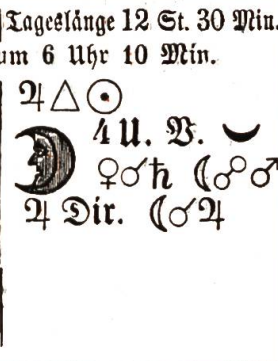 Tageslänge 12 St. 30 Min.
um 6 Uhr 10 Min.
♃△☉
4 U. V. ⌣
♀☌♄ ☾☍♂
♃ Dir. ☾☌♃